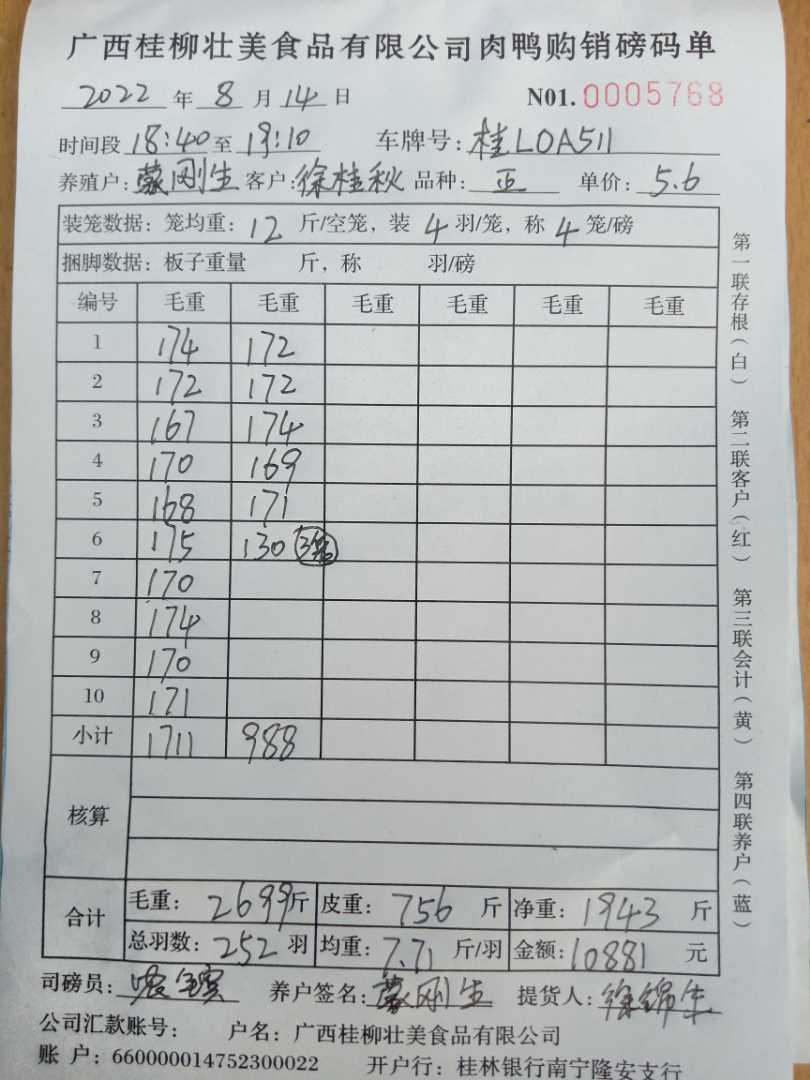 广西桂柳壮美食品有限公司肉鸭购销磅码单
2022 年 8 月 14 日 N01. 0005768
时间段 18:40 至 19:10 车牌号: 桂L0A511
养殖户: 蒙刚生 客户: 徐桂秋 品种: 正 单价: 5.6
装笼数据: 笼均重: 12 斤/空笼, 装 4 羽/笼, 称 4 笼/磅
捆脚数据: 板子重量 斤, 称 羽/磅
编号 毛重 毛重 毛重 毛重 毛重 毛重
1 174 172
2 172 172
3 167 174
4 170 169
5 168 171
6 175 130 3笼
7 170
8 174
9 170
10 171
小计 1711 988
核算
合计 毛重: 2699 斤 皮重: 756 斤 净重: 1943 斤
总羽数: 252 羽 均重: 7.71 斤/羽 金额: 10881 元
司磅员: 养户签名: 蒙刚生 提货人: 徐锦生
公司汇款账号: 户名: 广西桂柳壮美食品有限公司
账 户: 660000014752300022 开户行: 桂林银行南宁隆安支行
第一联存根(白) 第二联客户(红) 第三联会计(黄) 第四联养户(蓝)